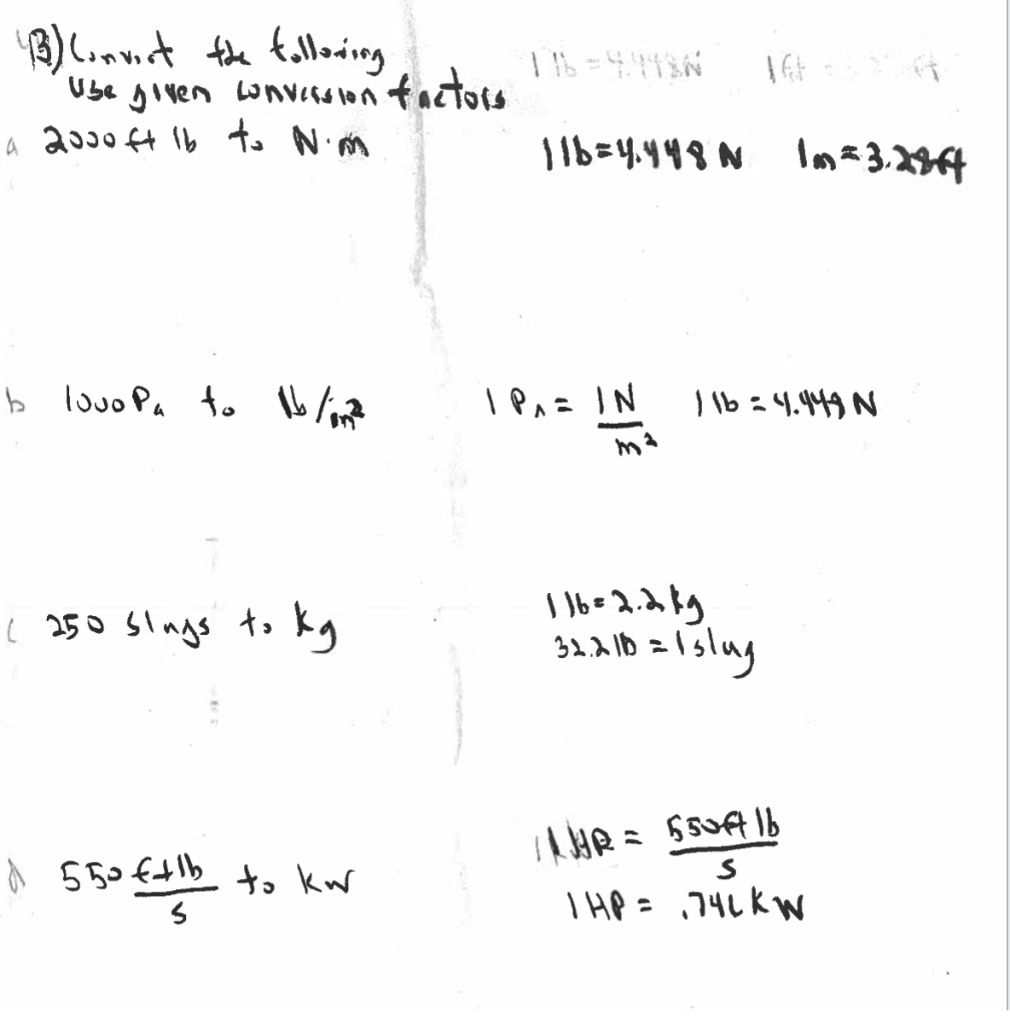 B) Convert the following
Use given conversion factors
a 2000 ft lb to N·m 1 lb = 4.448 N 1m = 3.28 ft
b 1000 Pa to lb/in² 1 Pa = 1N/m² 1 lb = 4.448 N
c 250 slugs to kg 1 lb = 2.2 kg
32.2 lb = 1 slug
d 550 ft lb/s to kW 1 HP = 550 ft lb/s
1 HP = .746 kW